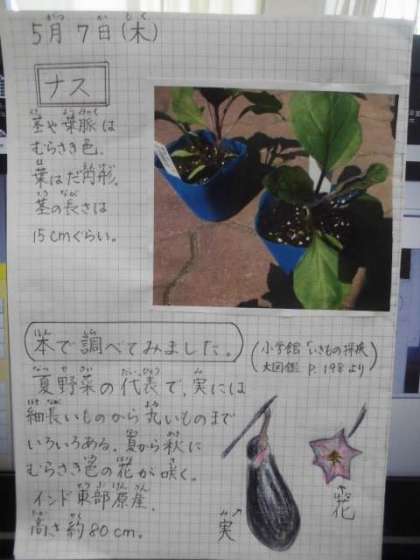 5月7日(木)
ナス
茎や葉脈は
むらさき色。
葉はだ円形。
茎の長さは
15cmぐらい。
本で調べてみました。
(小学館「いきもの探検
大図鑑 P.198より)
夏野菜の代表で、実には
細長いものから丸いものまで
いろいろある。夏から秋に
むらさき色の花が咲く。
インド東部原産。
高さ約80cm。
実
花